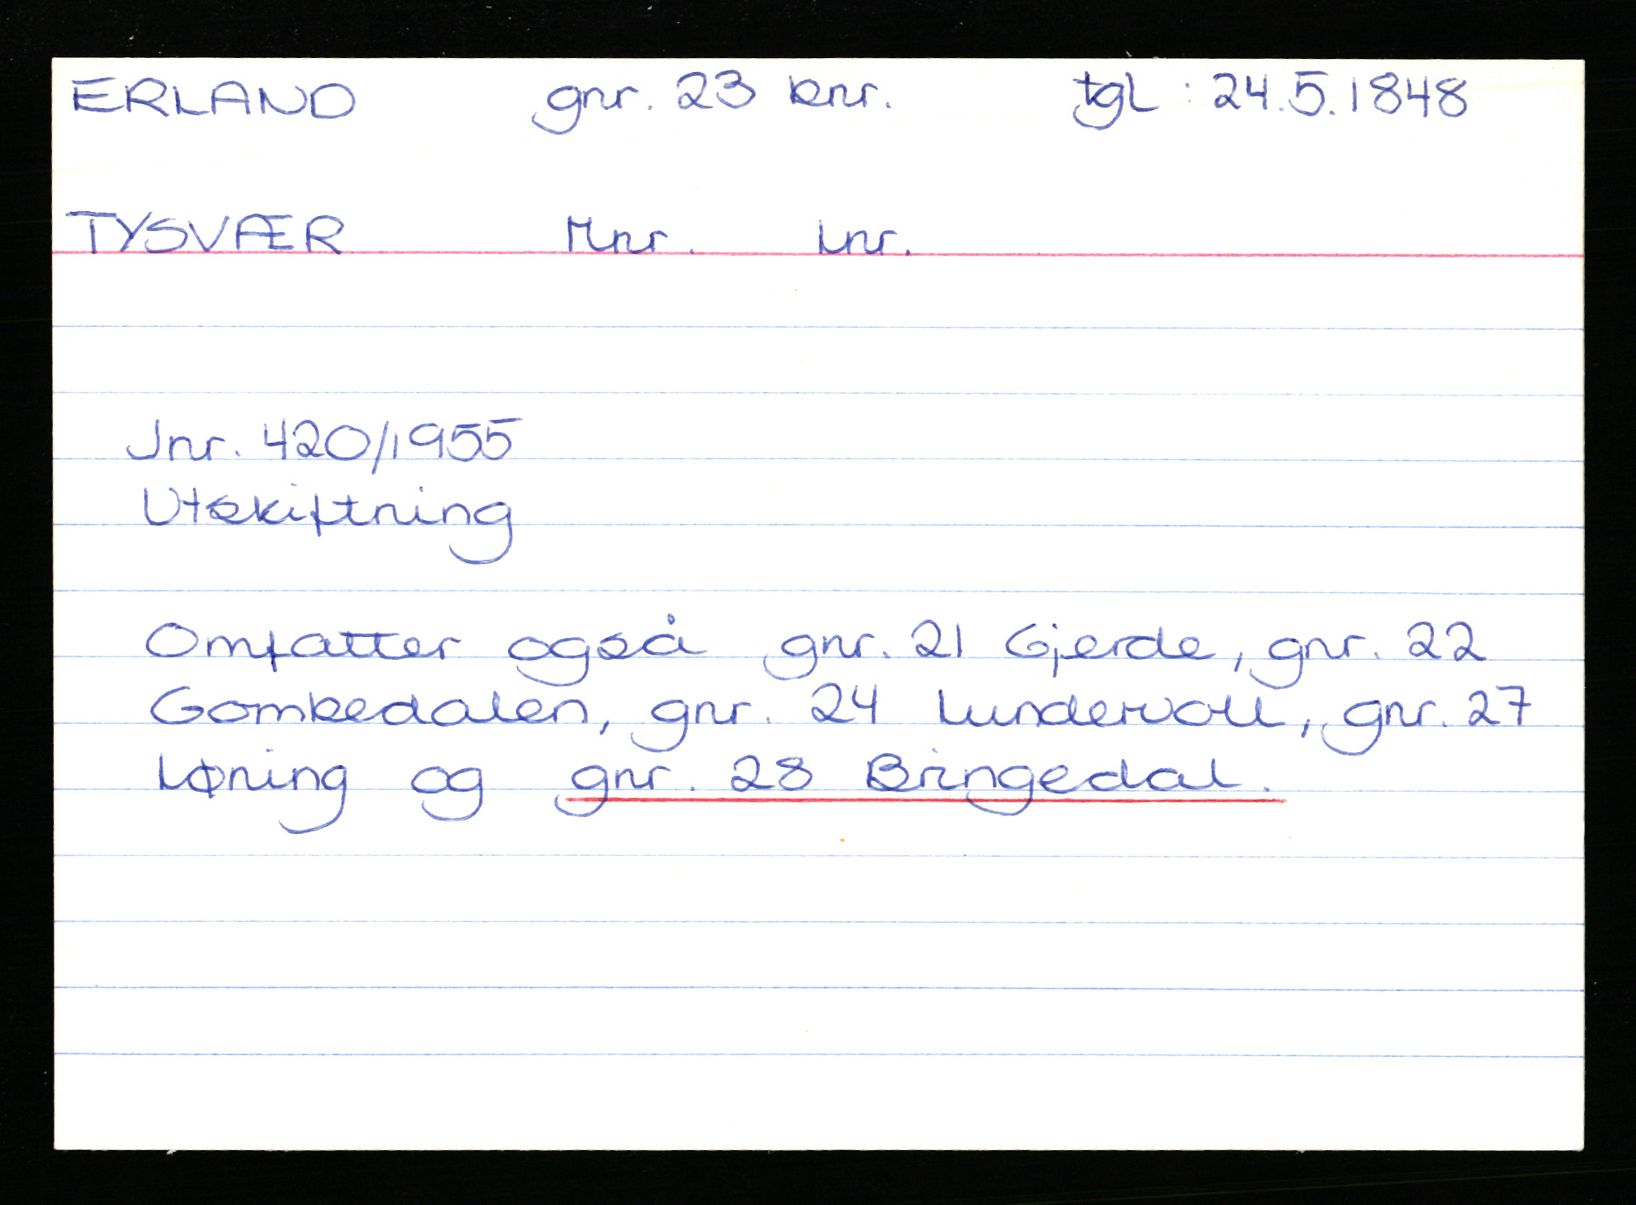 ERLAND gnr. 23 bnr. tgl : 24.5.1848
TYSVÆR Mnr. Lnr.
Jnr. 420/1955
Utskiftning
Omfatter også gnr. 21 Gjerde, gnr. 22
Gombedalen, gnr. 24 Lundervoll, gnr. 27
Løning og gnr. 28 Bringedal.